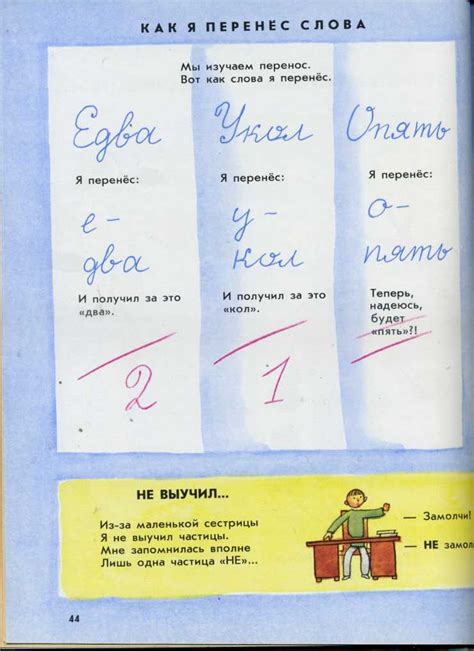 КАК Я ПЕРЕНЁС СЛОВА
Мы изучаем перенос.
Вот как слова я перенёс.
Едва
Я перенёс:
е-
два
И получил за это
«два».
2
Укол
Я перенёс:
у-
кол
И получил за это
«кол».
1
Опять
Я перенёс:
о-
пять
Теперь,
надеюсь,
будет
«пять»?!
НЕ ВЫУЧИЛ...
Из-за маленькой сестрицы
Я не выучил частицы.
Мне запомнилась вполне
Лишь одна частица «НЕ»...
— Замолчи!
— НЕ замол
44